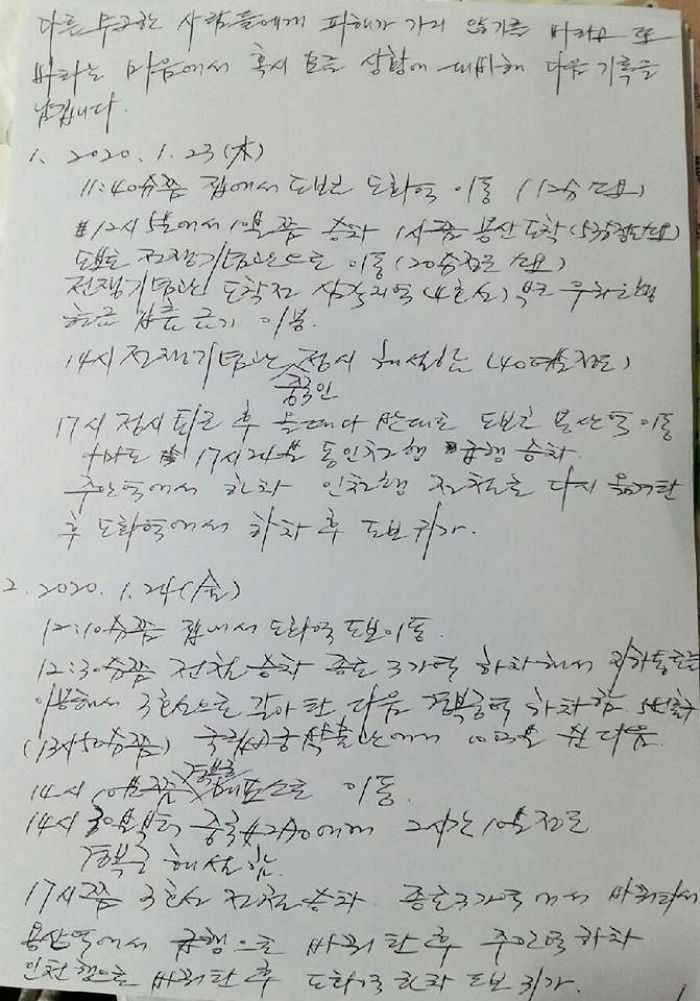 다른 무고한 사람들에게 피해가 가지 않기를 바라고 또
바라는 마음에서 혹시 모를 상황에 대비해 다음 기록을
남깁니다.
1. 2020. 1. 23 (木)
11:40분쯤 집에서 도보로 도화역 이동 (12분 소요)
12시 5분에서 10분쯤 승차 1시쯤 용산 도착
도보로 전쟁기념관으로 이동 (20분 정도 소요)
전쟁기념관 도착전 삼각지역 (4호선) 부근
현금 입출금기 이용.
14시 전쟁기념관 정시 해설함 (40여분 정도)
중국인
17시 정시 퇴근 후 올때와 반대로 도보로 용산역 이동
아마도 17시 24분 동인천행 급행 승차.
주안역에서 하차 인천행 전철로 다시 옮겨탄
후 도화역에서 하차 후 도보 귀가.
2. 2020. 1. 24 (金)
12:10분쯤 집에서 도화역 도보이동.
12:30분쯤 전철 승차 종로 3가역 하차해서 지하통로를
이용해서 3호선으로 갈아 탄 다음 경복궁역 하차함. 5번출구
(13시 50분쯤) 국립고궁박물관에서 10여분 쉰 다음
14시 10분쯤 경복궁 매표소로 이동.
14시 30분부터 중국 2시간 10분 정도
경복궁 해설함.
17시쯤 3호선 전철 승차. 종로3가역에서 바꿔타서
용산역에서 급행으로 바꿔 탄 후 주안역 하차
인천행으로 바꿔 탄 후 도화역 하차 도보 귀가.